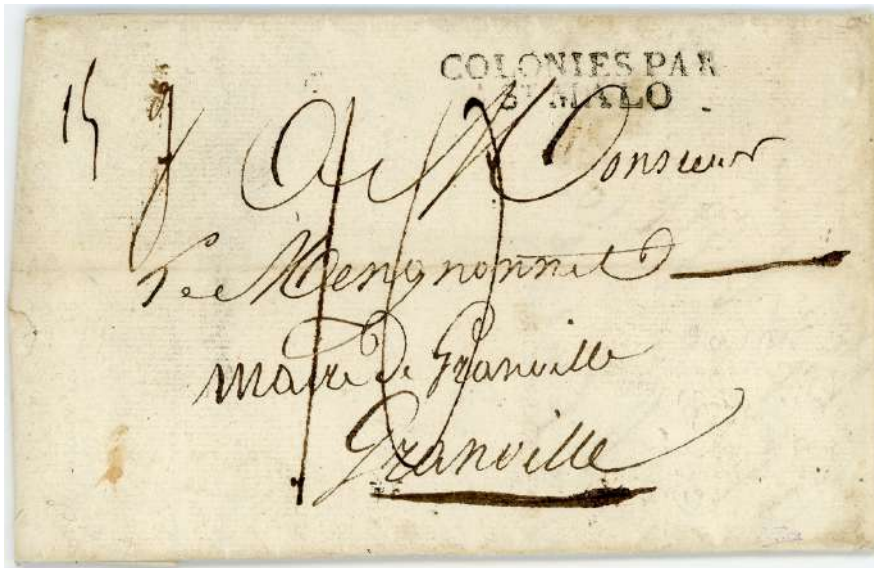 COLONIES PAR
ST MALO
15 g
A Monsieur
Le Mengnonnet
maire de Granville
Granville